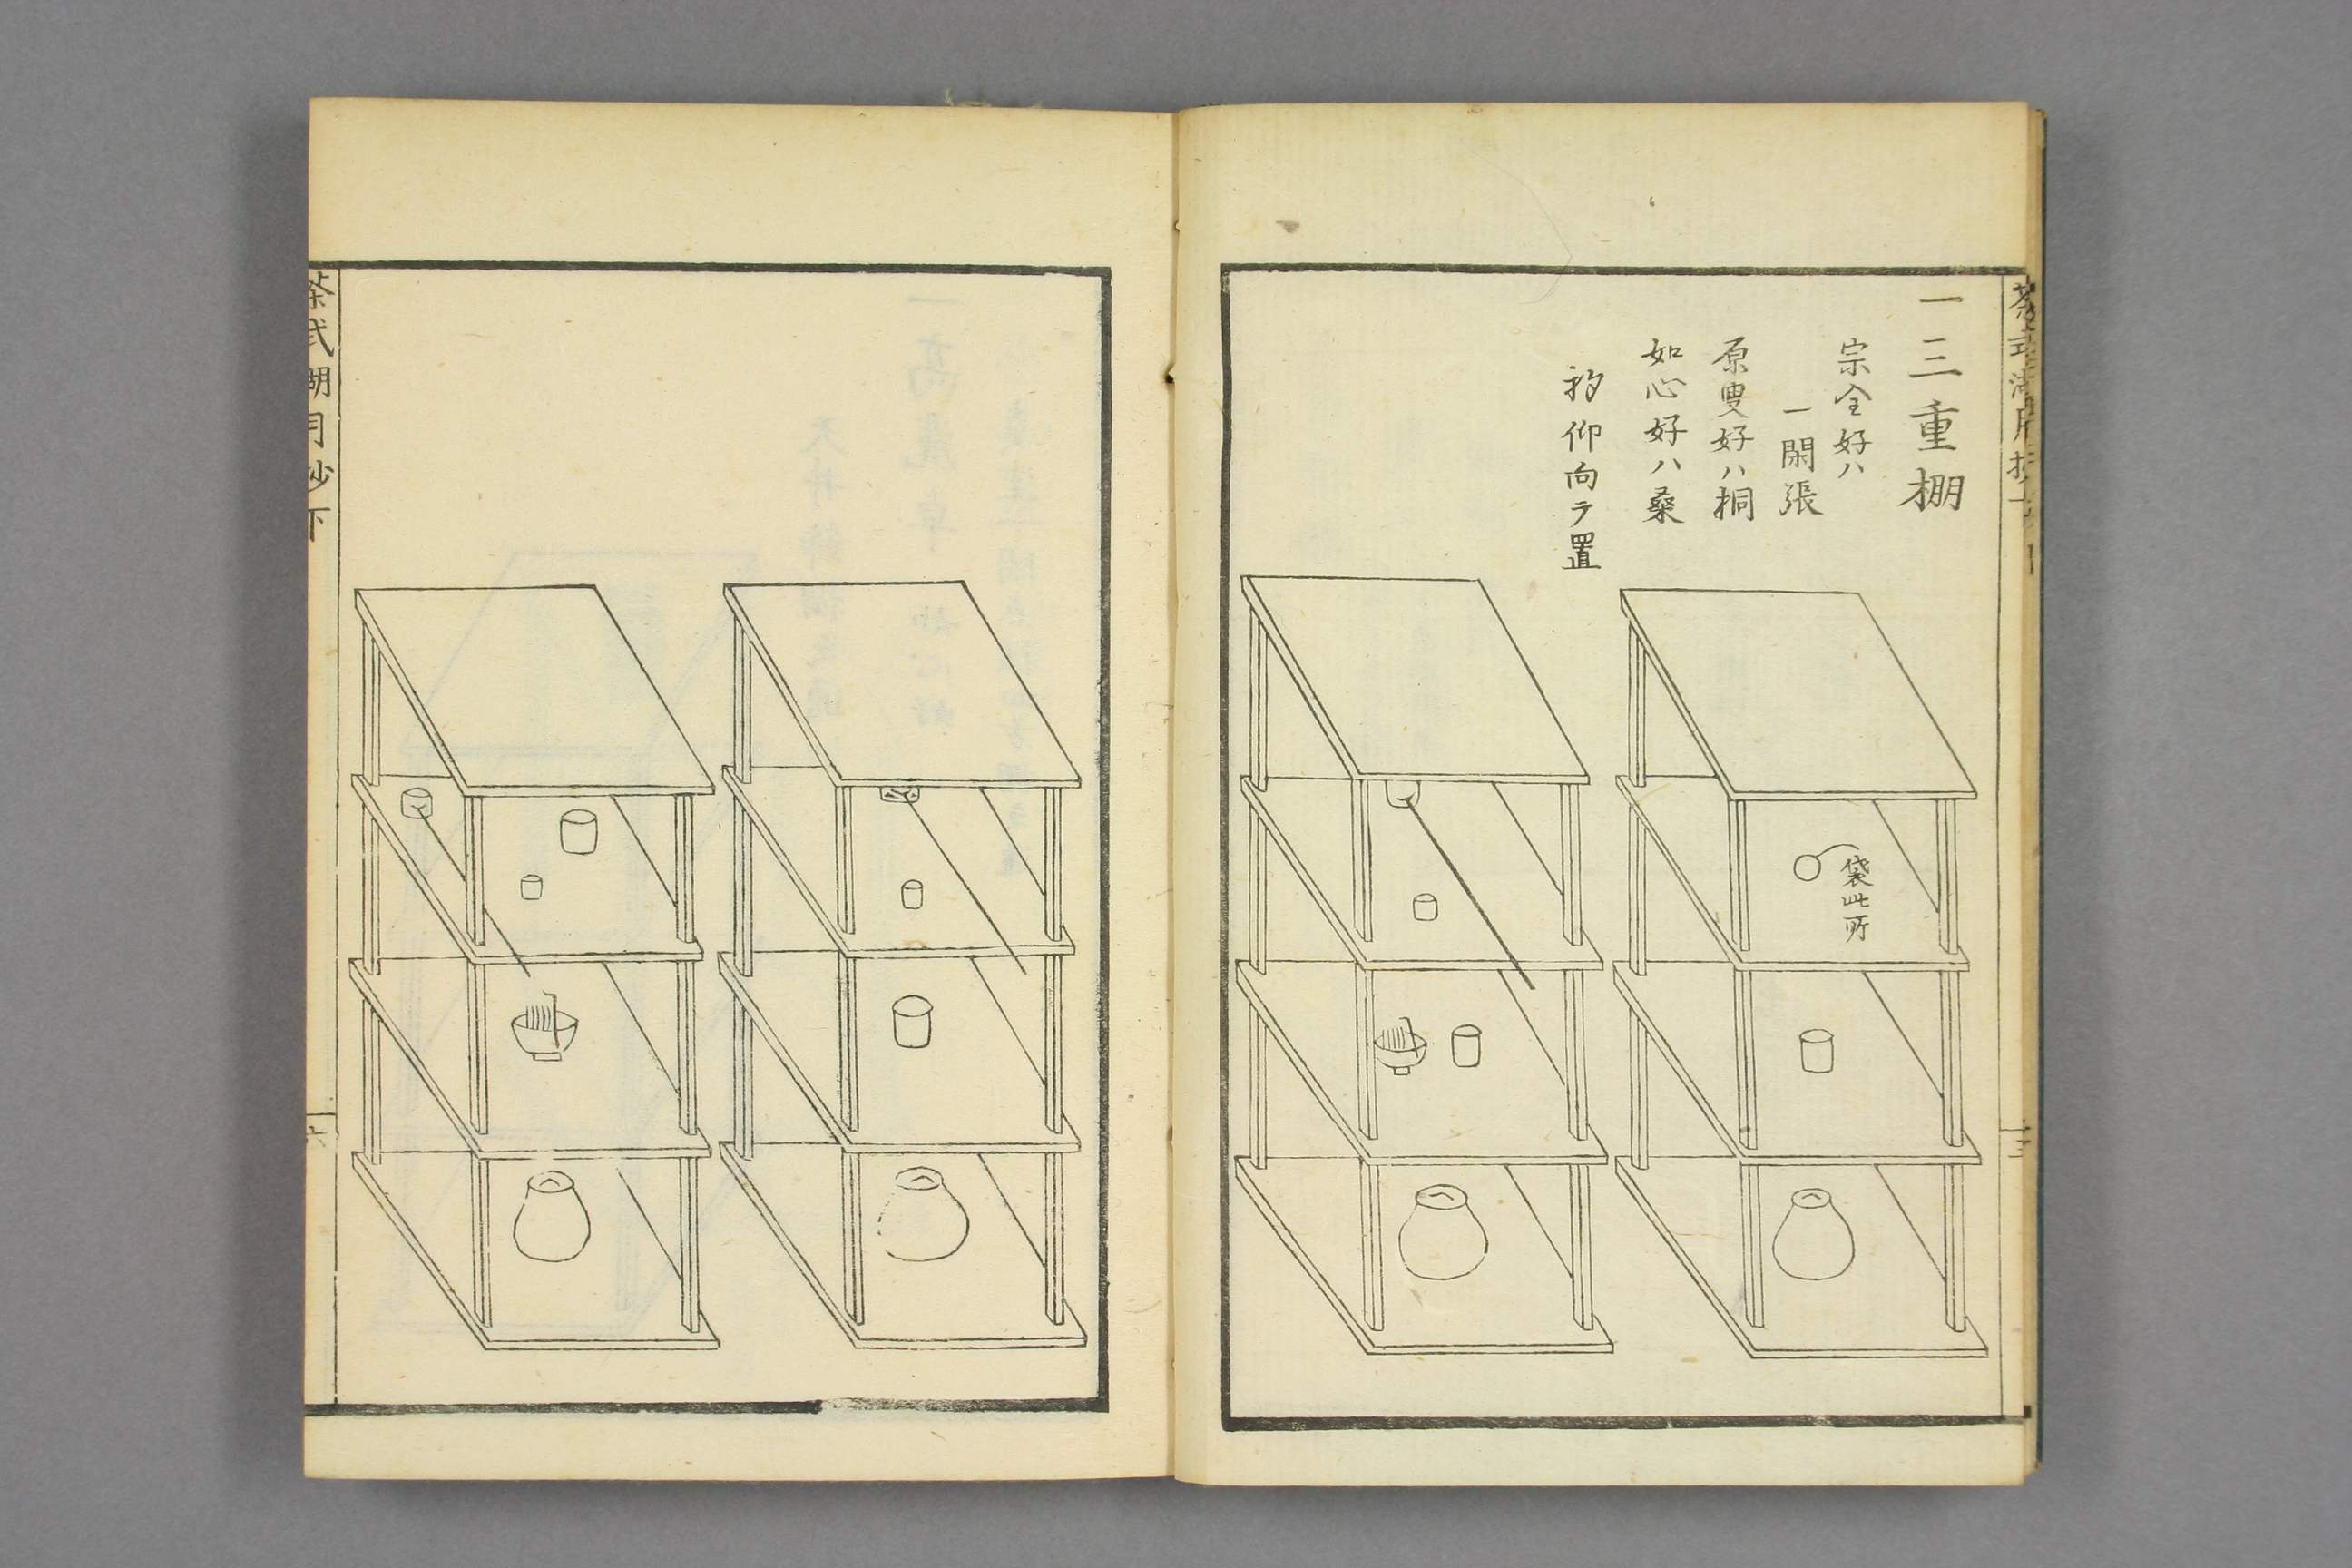 一三重棚
宗全好ハ
一閑張
原叟好ハ桐
如心好ハ桑
杓仰向テ置
袋此所
茶式湖月抄下